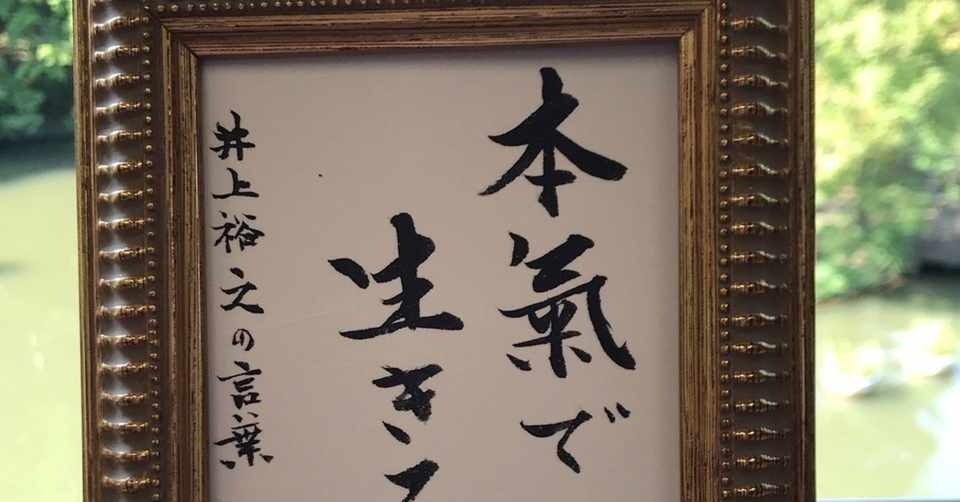 本氣で
生きる
井上裕之の言葉